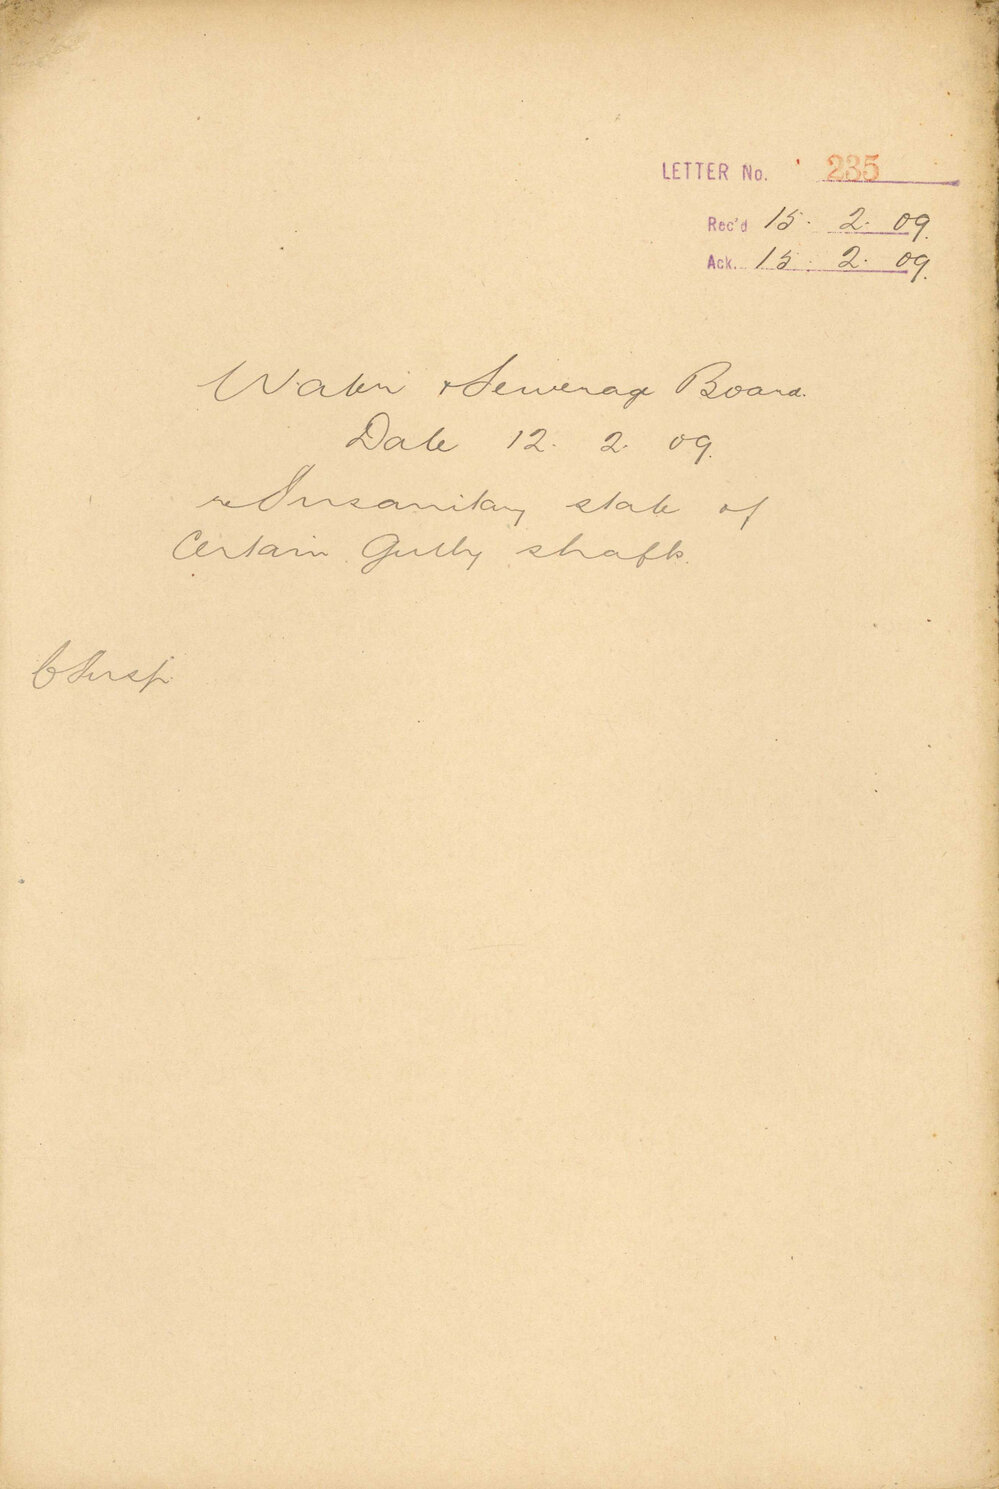 LETTER No. 235
Rec'd 15. 2. 09.
Ack. 15. 2. 09.
Water & Sewerage Board.
Date 12. 2. 09.
re Insanitary state of
Certain Gully shafts.
C Insp.